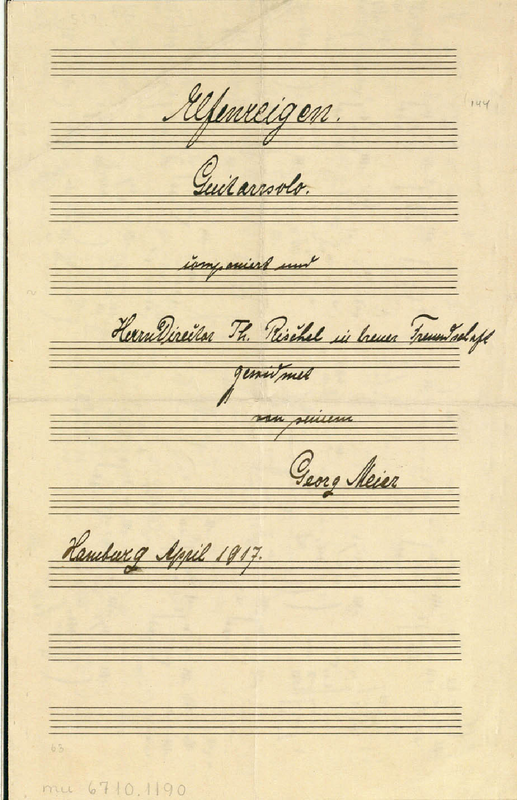 144
Elfenreigen.
Guitarrsolo.
componiert und
Herrn Director Th. Rischel in treuer Freundschaft
gewidmet
von seinem
Georg Meier
Hamburg April 1917.
63
mu 6710.1190